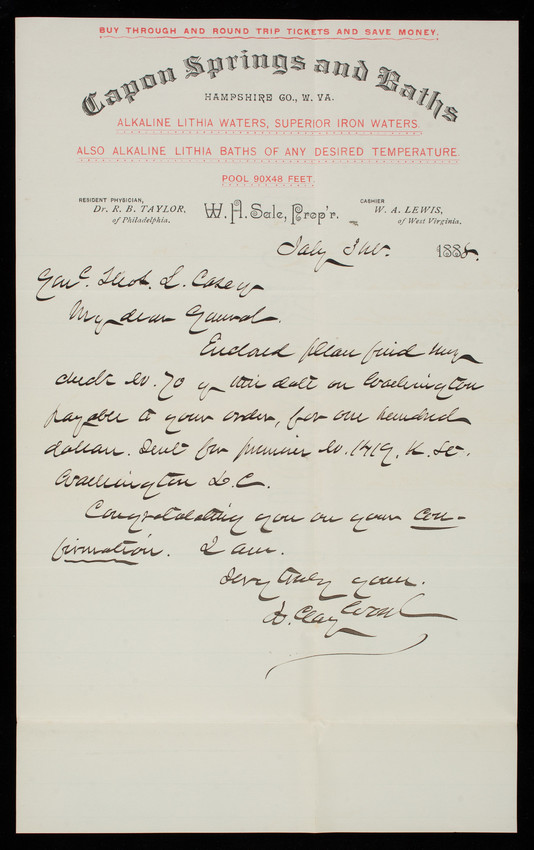 BUY THROUGH AND ROUND TRIP TICKETS AND SAVE MONEY.
Capon Springs and Baths
HAMPSHIRE CO., W. VA.
ALKALINE LITHIA WATERS, SUPERIOR IRON WATERS
ALSO ALKALINE LITHIA BATHS OF ANY DESIRED TEMPERATURE.
POOL 90X48 FEET.
RESIDENT PHYSICIAN,
Dr. R. B. TAYLOR,
of Philadelphia.
W. H. Sale, Prop'r.
CASHIER
W. A. LEWIS,
of West Virginia.
July 1888.
Genl. Thos. L. Casey
My dear General.
Enclosed please find my
check No. 70 of this date on Washington
payable to your order, for one hundred
dollars. Rent for premises No. 1419, K. St.
Washington D.C.
Congratulating you on your con-
firmation. I am.
Very truly yours.
H. Clay Wood